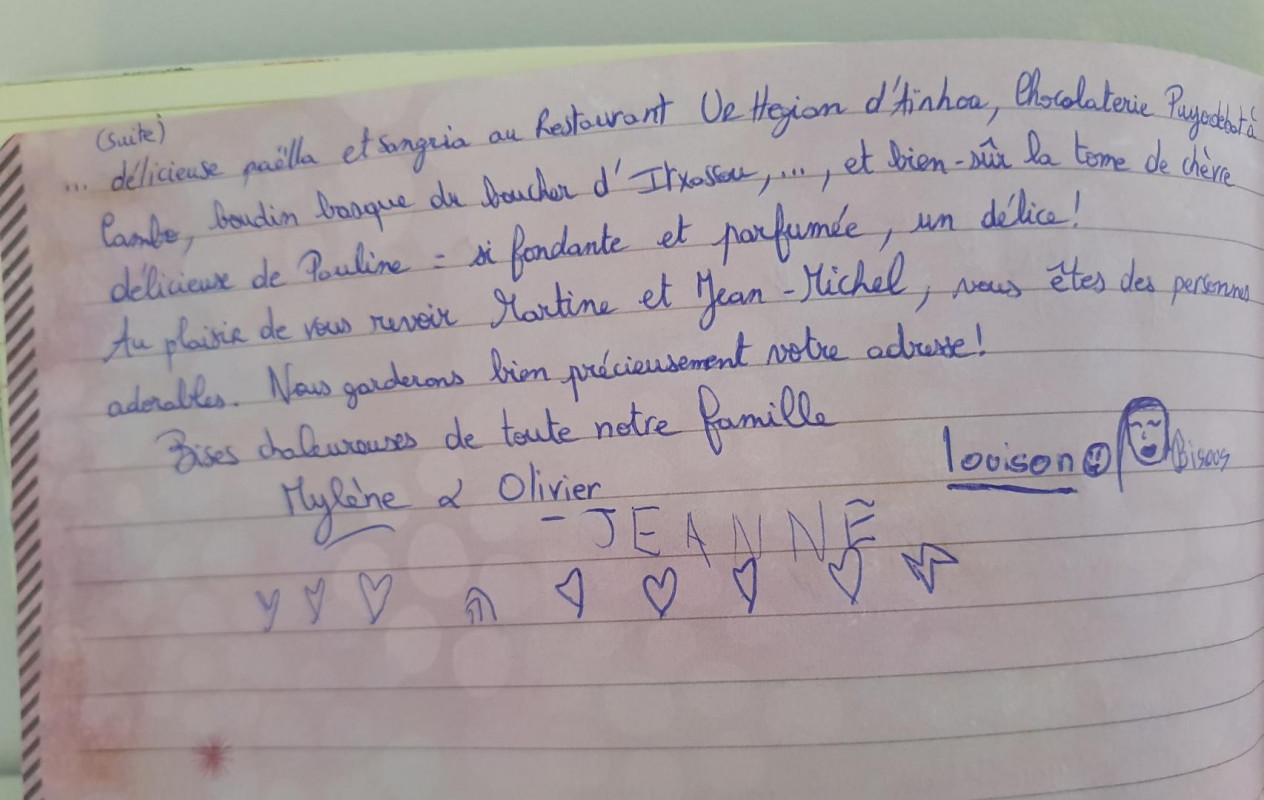 (suite)
... délicieuse paëlla et sangria au Restaurant Ur Hegian d'Ainhoa, Chocolaterie Puyodebat à
Cambo, boudin basque du boucher d'Itxassou, ..., et bien-sûr la tome de chèvre
délicieuse de Pauline = si fondante et parfumée, un délice!
Au plaisir de vous revoir Martine et Jean-Michel, vous êtes des personnes
adorables. Nous garderons bien précieusement votre adresse!
Bises chaleureuses de toute notre famille
Mylène & Olivier
louison Bisous
- JEANNE